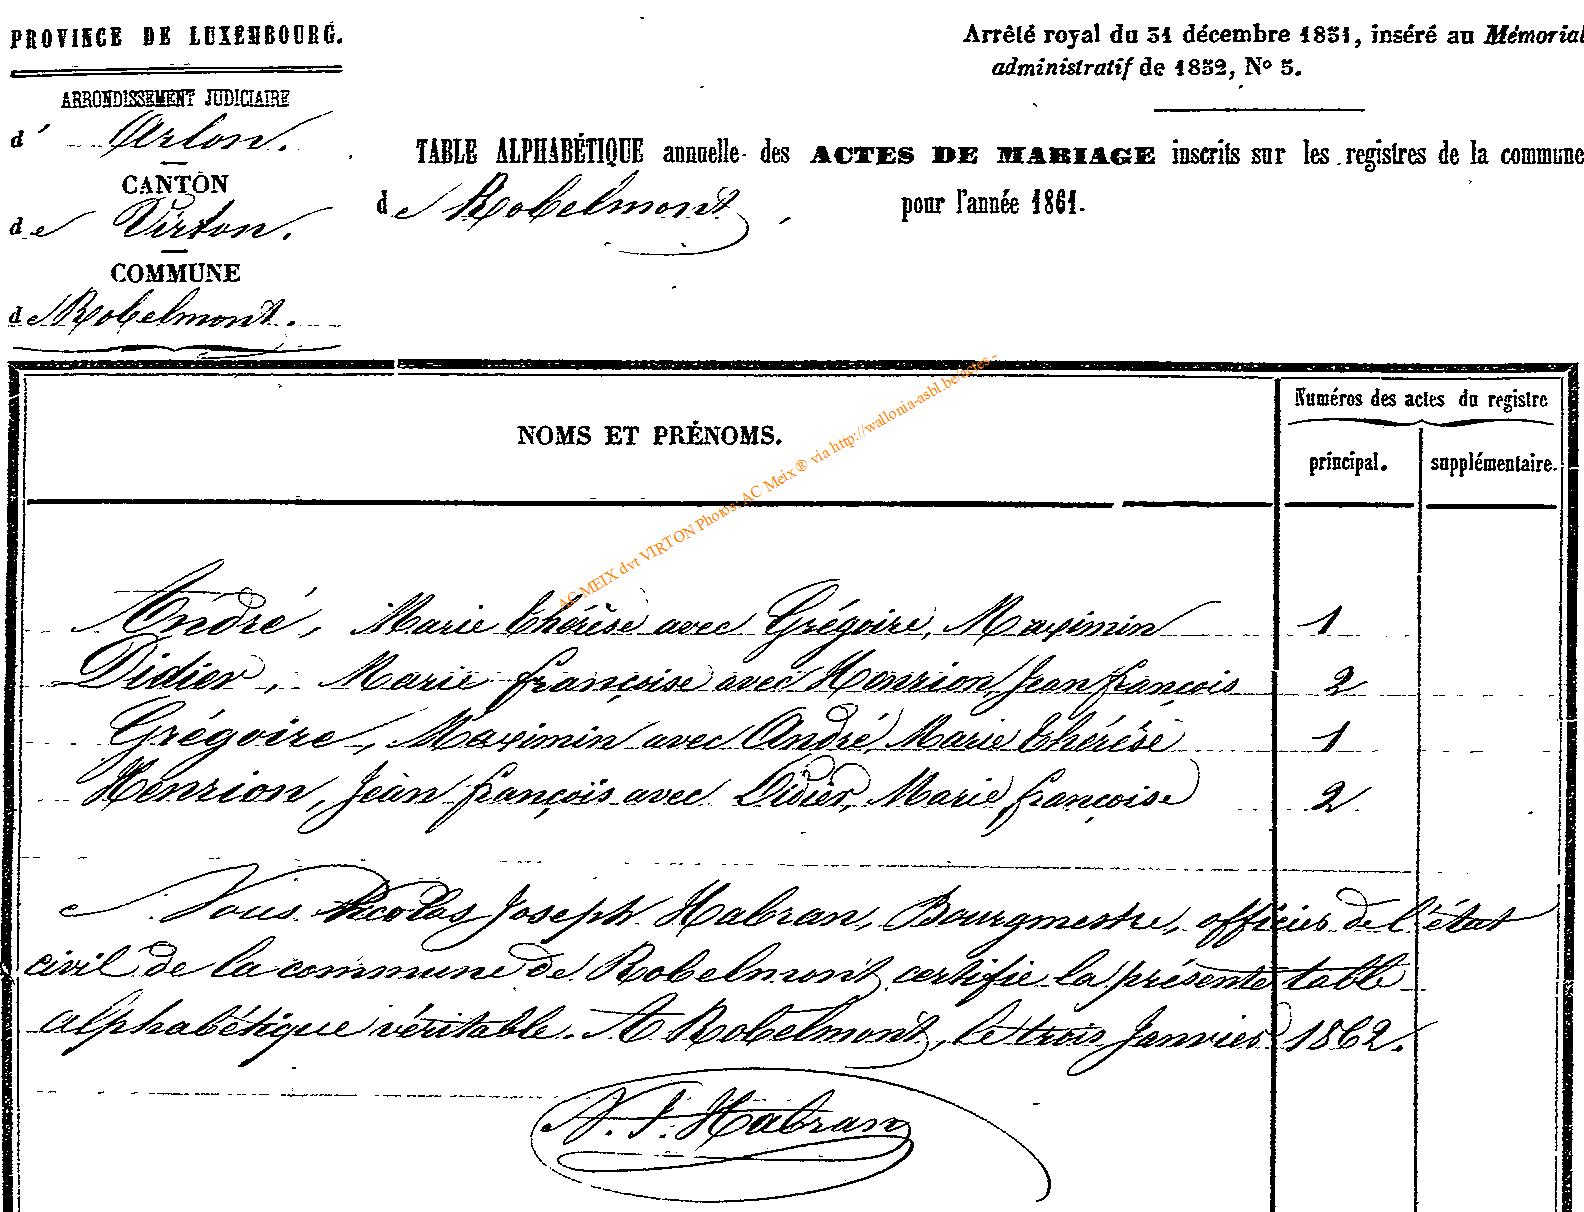 PROVINCE DE LUXEMBOURG.
ARRONDISSEMENT JUDICIAIRE
d' Arlon.
CANTON
de Virton.
COMMUNE
de Robelmont.
Arrêté royal du 31 décembre 1831, inséré au Mémorial
administratif de 1832, N° 3.
TABLE ALPHABÉTIQUE annuelle des ACTES DE MARIAGE inscrits sur les registres de la commune
de Robelmont, pour l'année 1861.
NOMS ET PRÉNOMS.
Numéros des actes du registre
principal. supplémentaire.
AC MEIX dvt VIRTON Photos: AC Meix ® via http://wallonia-asbl.be/actes -
André, Marie Thérèse avec Grégoire, Maximin 1
Didier, Marie françoise avec Henrion, Jean françois 2
Grégoire, Maximin avec André, Marie Thérèse 1
Henrion, Jean françois avec Didier, Marie françoise 2
Nous Nicolas Joseph Habran, Bourgmestre, officier de l'état
civil de la commune de Robelmont certifie la présente table
alphabétique véritable. A Robelmont, le trois Janvier 1862.
N. J. Habran